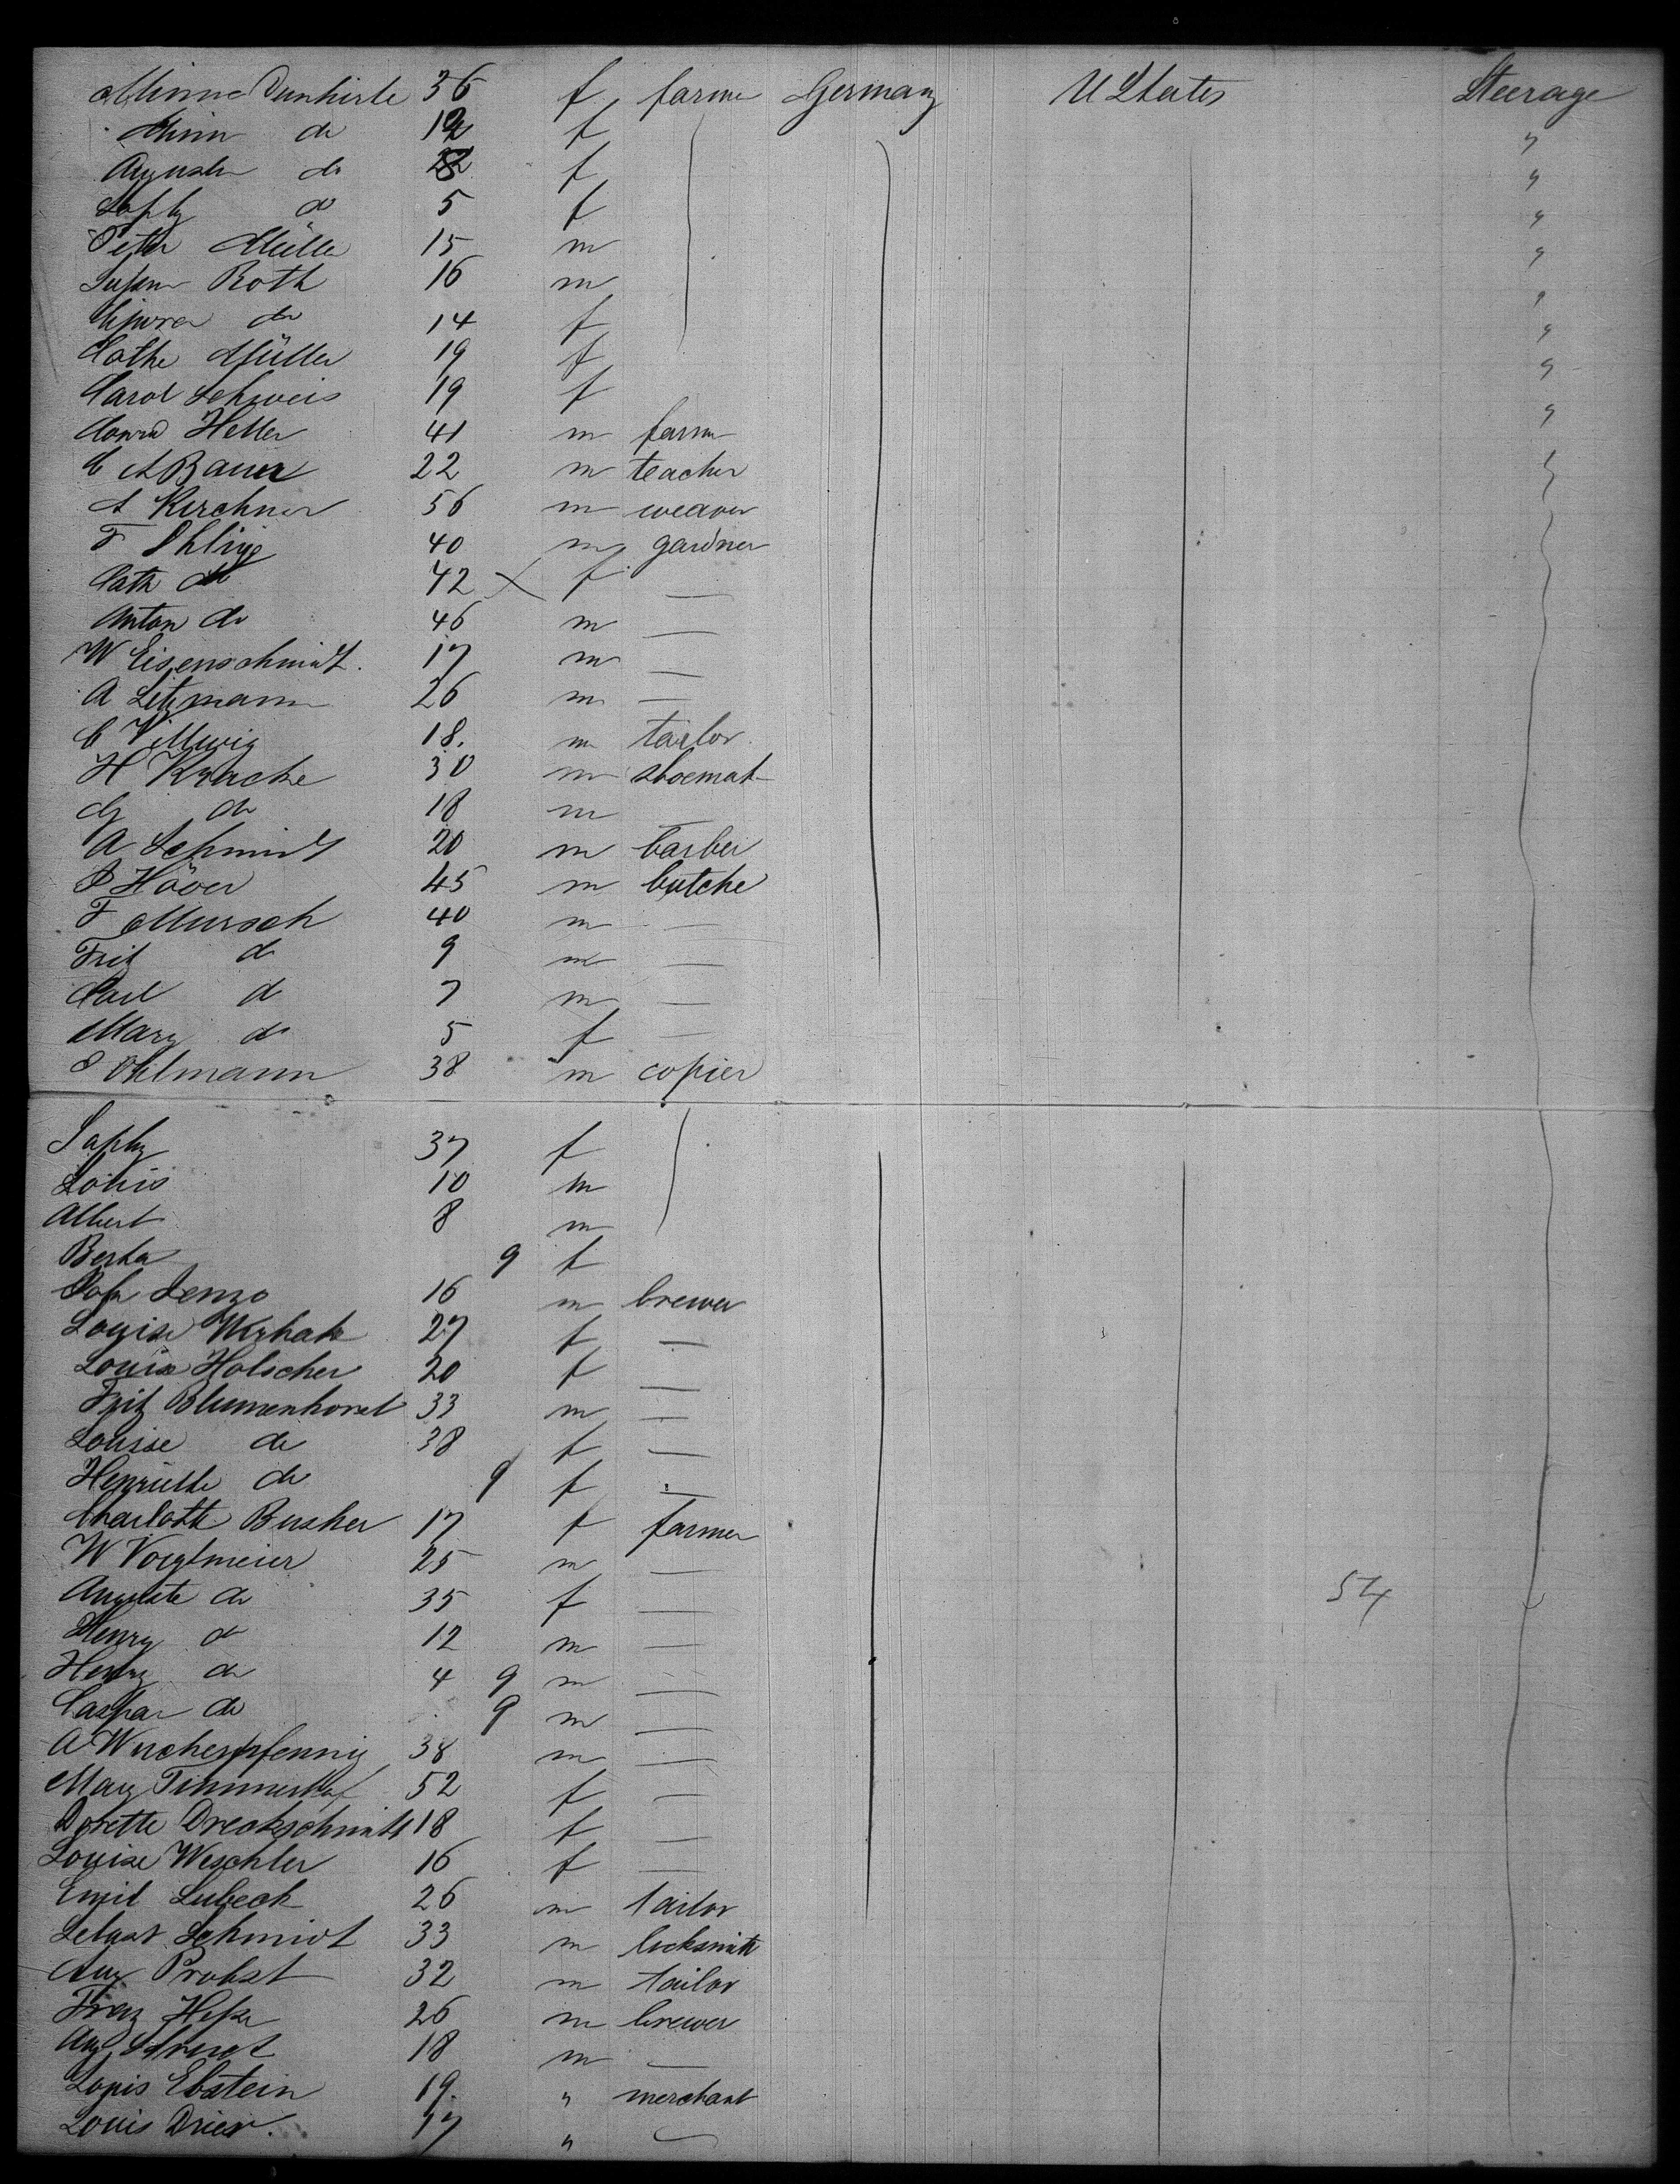 Minna Dunkirle 36 f farme Germany U States Steerage
Minn do 12 f "
Augusta do 8 f "
Sophy do 5 f "
Peter Müller 15 m "
Roth 16 m "
do 14 f "
Cathe Müller 19 f "
Carol Schweis 19 f "
Conrd Heller 41 m farm
C A Bauer 22 m teacher
A Kirchner 56 m weaver
F Ohlige 40 m gardner
Cath do 42 x f —
Anton do 46 m —
W Eisenschmidt. 17 m —
A Letzmann 26 m —
C Villwig 18. m tailor
H Kracke 30 m shoemak
G do 18 m —
A Schmidt 20 m barber
P Höver 45 m butche
F Mursch 40 m —
Fritz do 9 m —
Carl do 7 m —
Mary do 5 f —
Ohlmann 38 m copier
Sophy 37 f
Louis 10 m
Albert 8 m
Berta 9 f
Joh Lenzo 16 m brewer
Louise 27 f —
Louise Holscher 20 f —
Fritz Blumenhorst 33 m —
Louise do 38 f —
Henriette do 9 f —
Charlotte Busher 17 f farmer
W Voegtmeier 25 m —
Auguste do 35 f — 54
Henry do 12 m —
Henry do 4 9 m —
Caspar do 9 m —
A Wucherpfennig 38 m —
Mary Timmerhof 52 f —
Dorette Dreckschmidt 18 f —
Louise Weschler 16 f —
Emil Lubeck 26 m tailor
Sebast Schmidt 33 m locksmith
Aug Probst 32 m tailor
Franz 26 m brewer
Aug 18 m —
Louis Ebstein 19. " merchant
Louis Drier. 17 " —